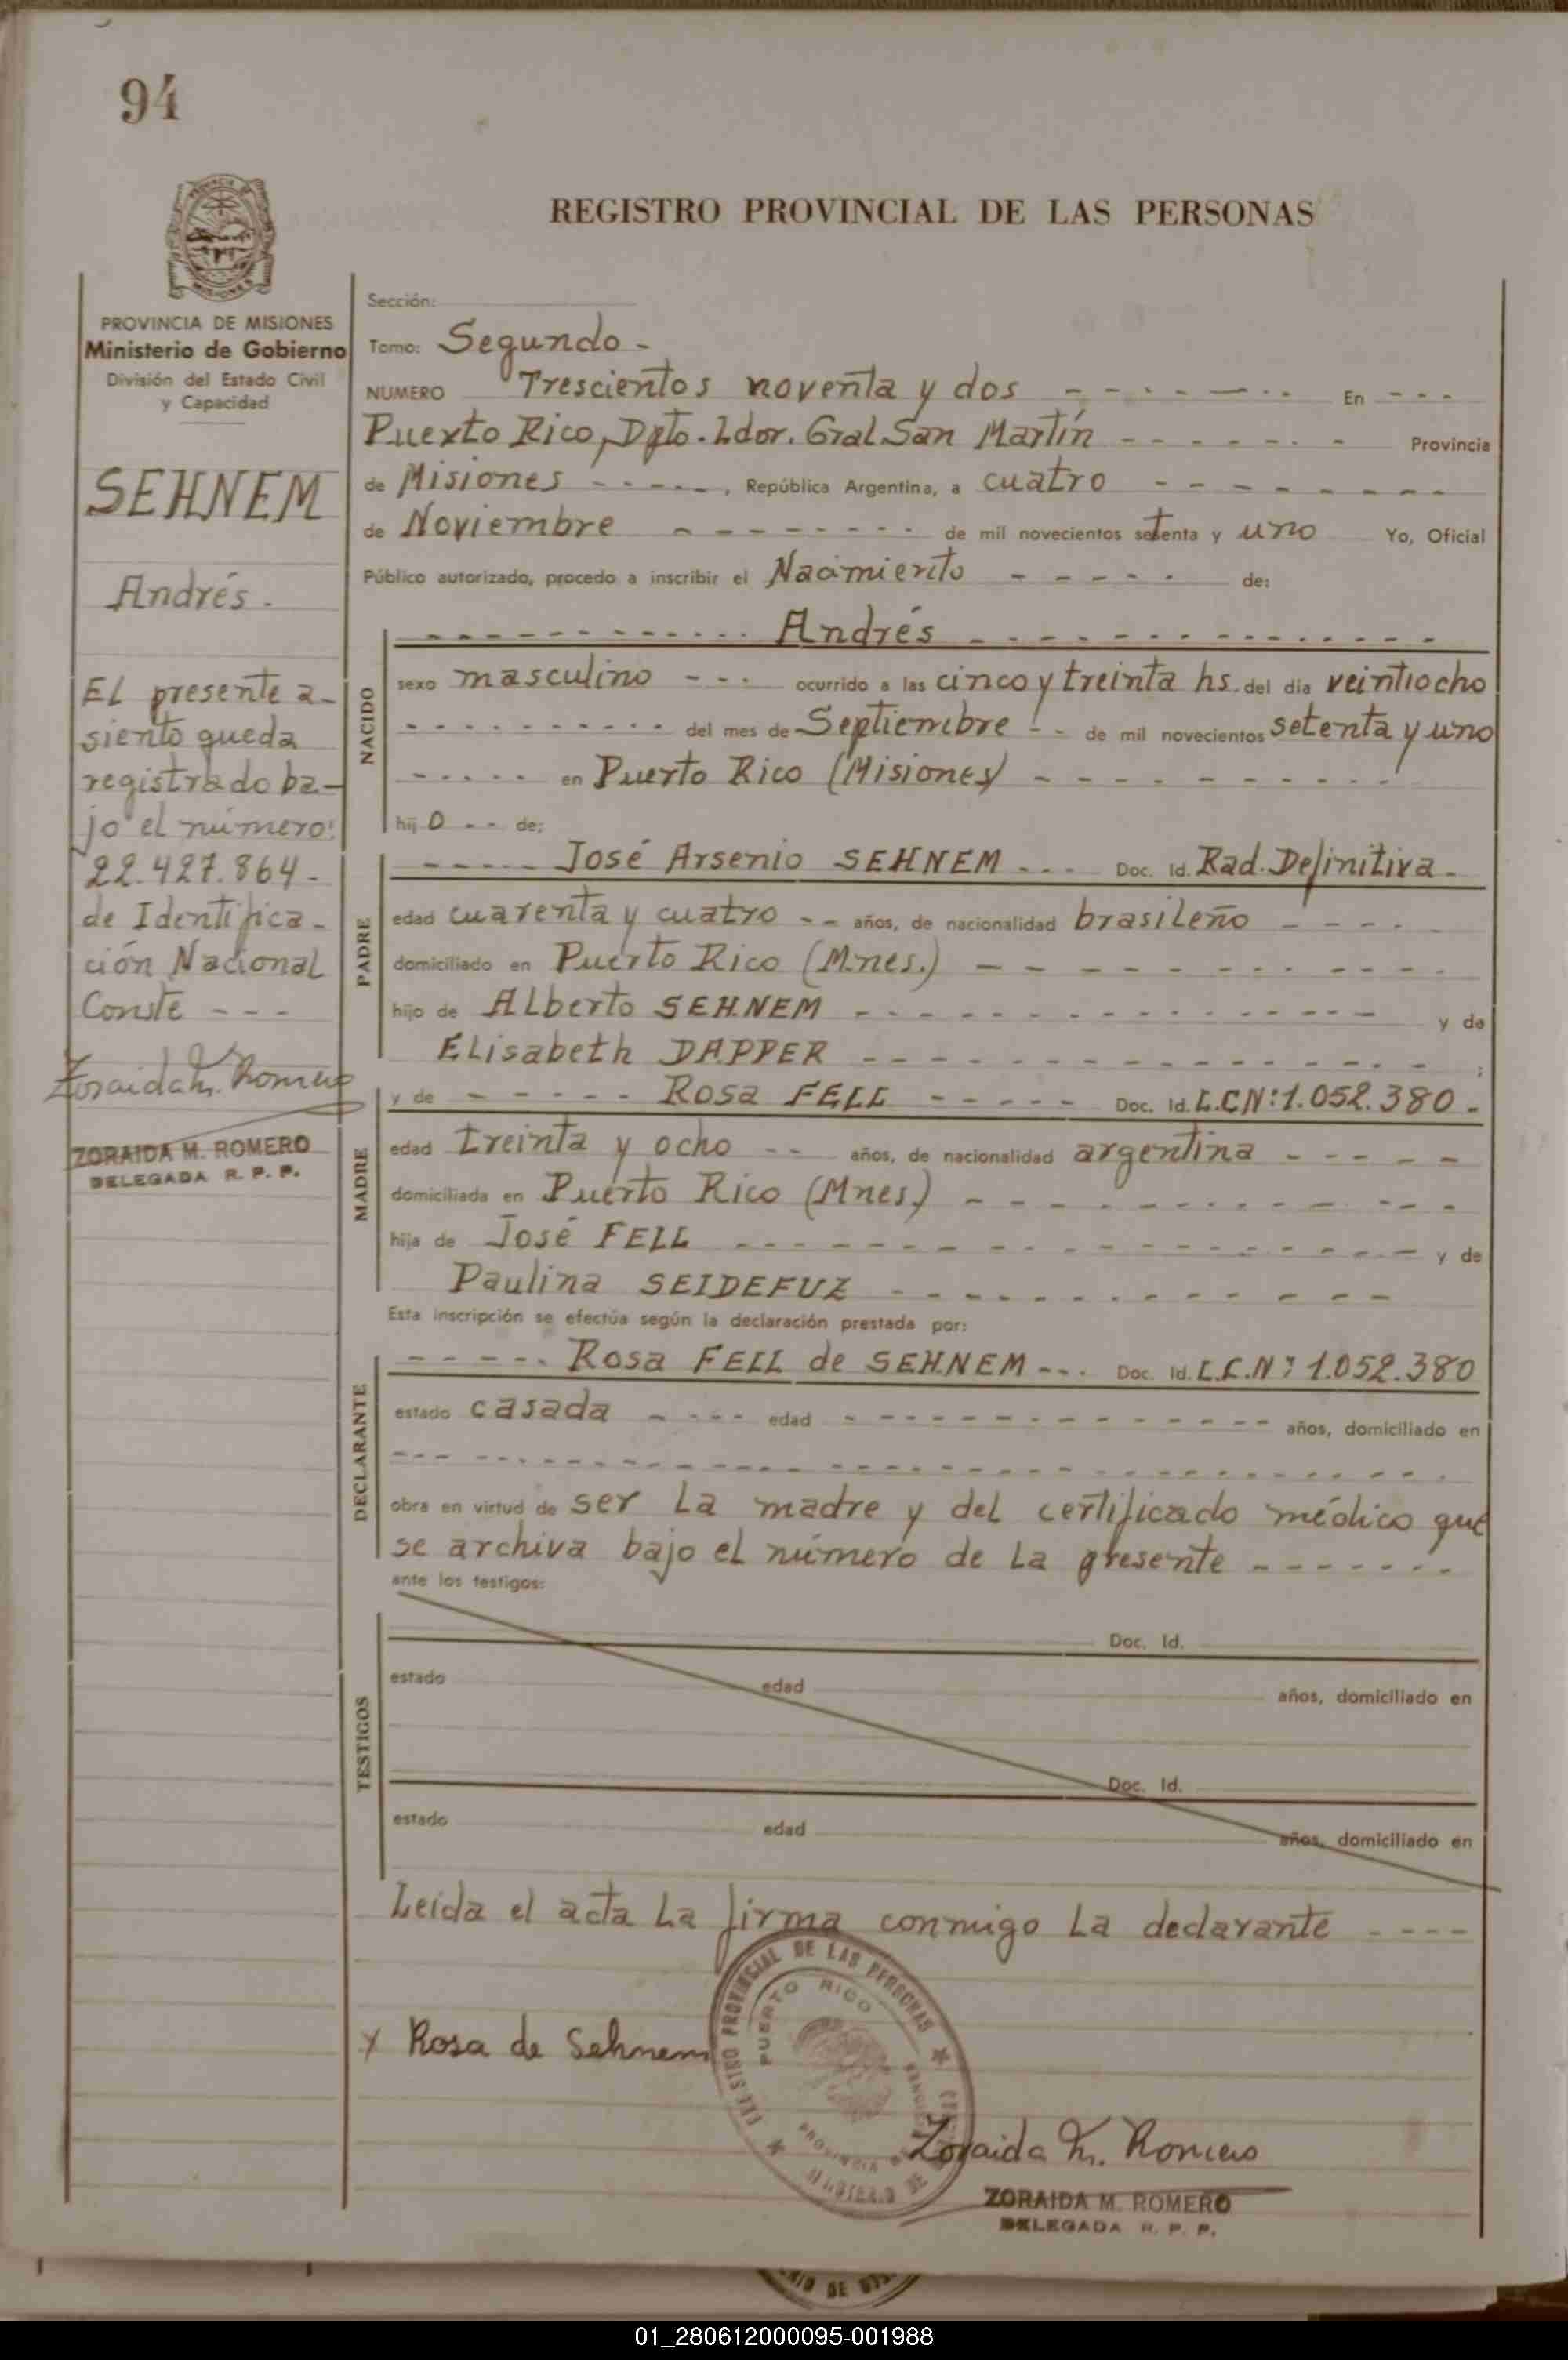 94
REGISTRO PROVINCIAL DE LAS PERSONAS
PROVINCIA DE MISIONES
Ministerio de Gobierno
División del Estado Civil
y Capacidad
SEHNEM
Andrés.
El presente a-
siento queda
registrado ba-
jo el número:
22.427.864-
de Identifica-
ción Nacional
Conste ---
Zoraida M. Romero
ZORAIDA M. ROMERO
DELEGADA R. P. P.
Sección:
Tomo: Segundo -
NUMERO Trescientos noventa y dos - - - - - - - - En - - -
Puerto Rico, Dpto. Ldor. Gral San Martín - - - - - - - Provincia
de Misiones - - - - -, República Argentina, a cuatro - - - - - - - -
de Noviembre - - - - - - - - de mil novecientos setenta y uno Yo, Oficial
Público autorizado, procedo a inscribir el Nacimiento - - - - - de:
NACIDO
- - - - - - - - - - - - Andrés - - - - - - - - - - - - - -
sexo masculino - - - ocurrido a las cinco y treinta hs. del día veintiocho
- - - - - - - - - - del mes de Septiembre - - de mil novecientos setenta y uno
- - - - - en Puerto Rico (Misiones) - - - - - - - - - -
hij o - - de:
PADRE
- - - - - José Arsenio SEHNEM - - - Doc. Id. Rad. Definitiva -
edad cuarenta y cuatro - - años, de nacionalidad brasileño - - - -
domiciliado en Puerto Rico (Mnes.) - - - - - - - - - - - -
hijo de Alberto SEHNEM - - - - - - - - - - - - - - y de
Elisabeth DAPPER - - - - - - - - - - - - - - - ;
MADRE
y de - - - - - Rosa FELL - - - - - Doc. Id. L.C.Nº: 1.052.380 -
edad treinta y ocho - - años, de nacionalidad argentina - - - - -
domiciliada en Puerto Rico (Mnes.) - - - - - - - - - - - -
hija de José FELL - - - - - - - - - - - - - - - - y de
Paulina SEIDEFUZ - - - - - - - - - - - -
Esta inscripción se efectúa según la declaración prestada por:
DECLARANTE
- - - - - Rosa FELL de SEHNEM - - - Doc. Id. L.C.Nº: 1.052.380
estado casada - - - - edad - - - - - - - - - - - - - años, domiciliado en
- - - - - - - - - - - - - - - - - - - - - - - - - - - -
obra en virtud de ser la madre y del certificado médico que
se archiva bajo el número de la presente - - - - - - -
ante los testigos:
TESTIGOS
Doc. Id.
estado edad años, domiciliado en
Doc. Id.
estado edad años, domiciliado en
Leída el acta la firma conmigo la declarante - - - -
REGISTRO PROVINCIAL DE LAS PERSONAS
PUERTO RICO
x Rosa de Sehnem
Zoraida M. Romero
ZORAIDA M. ROMERO
DELEGADA R. P. P.
01_280612000095-001988